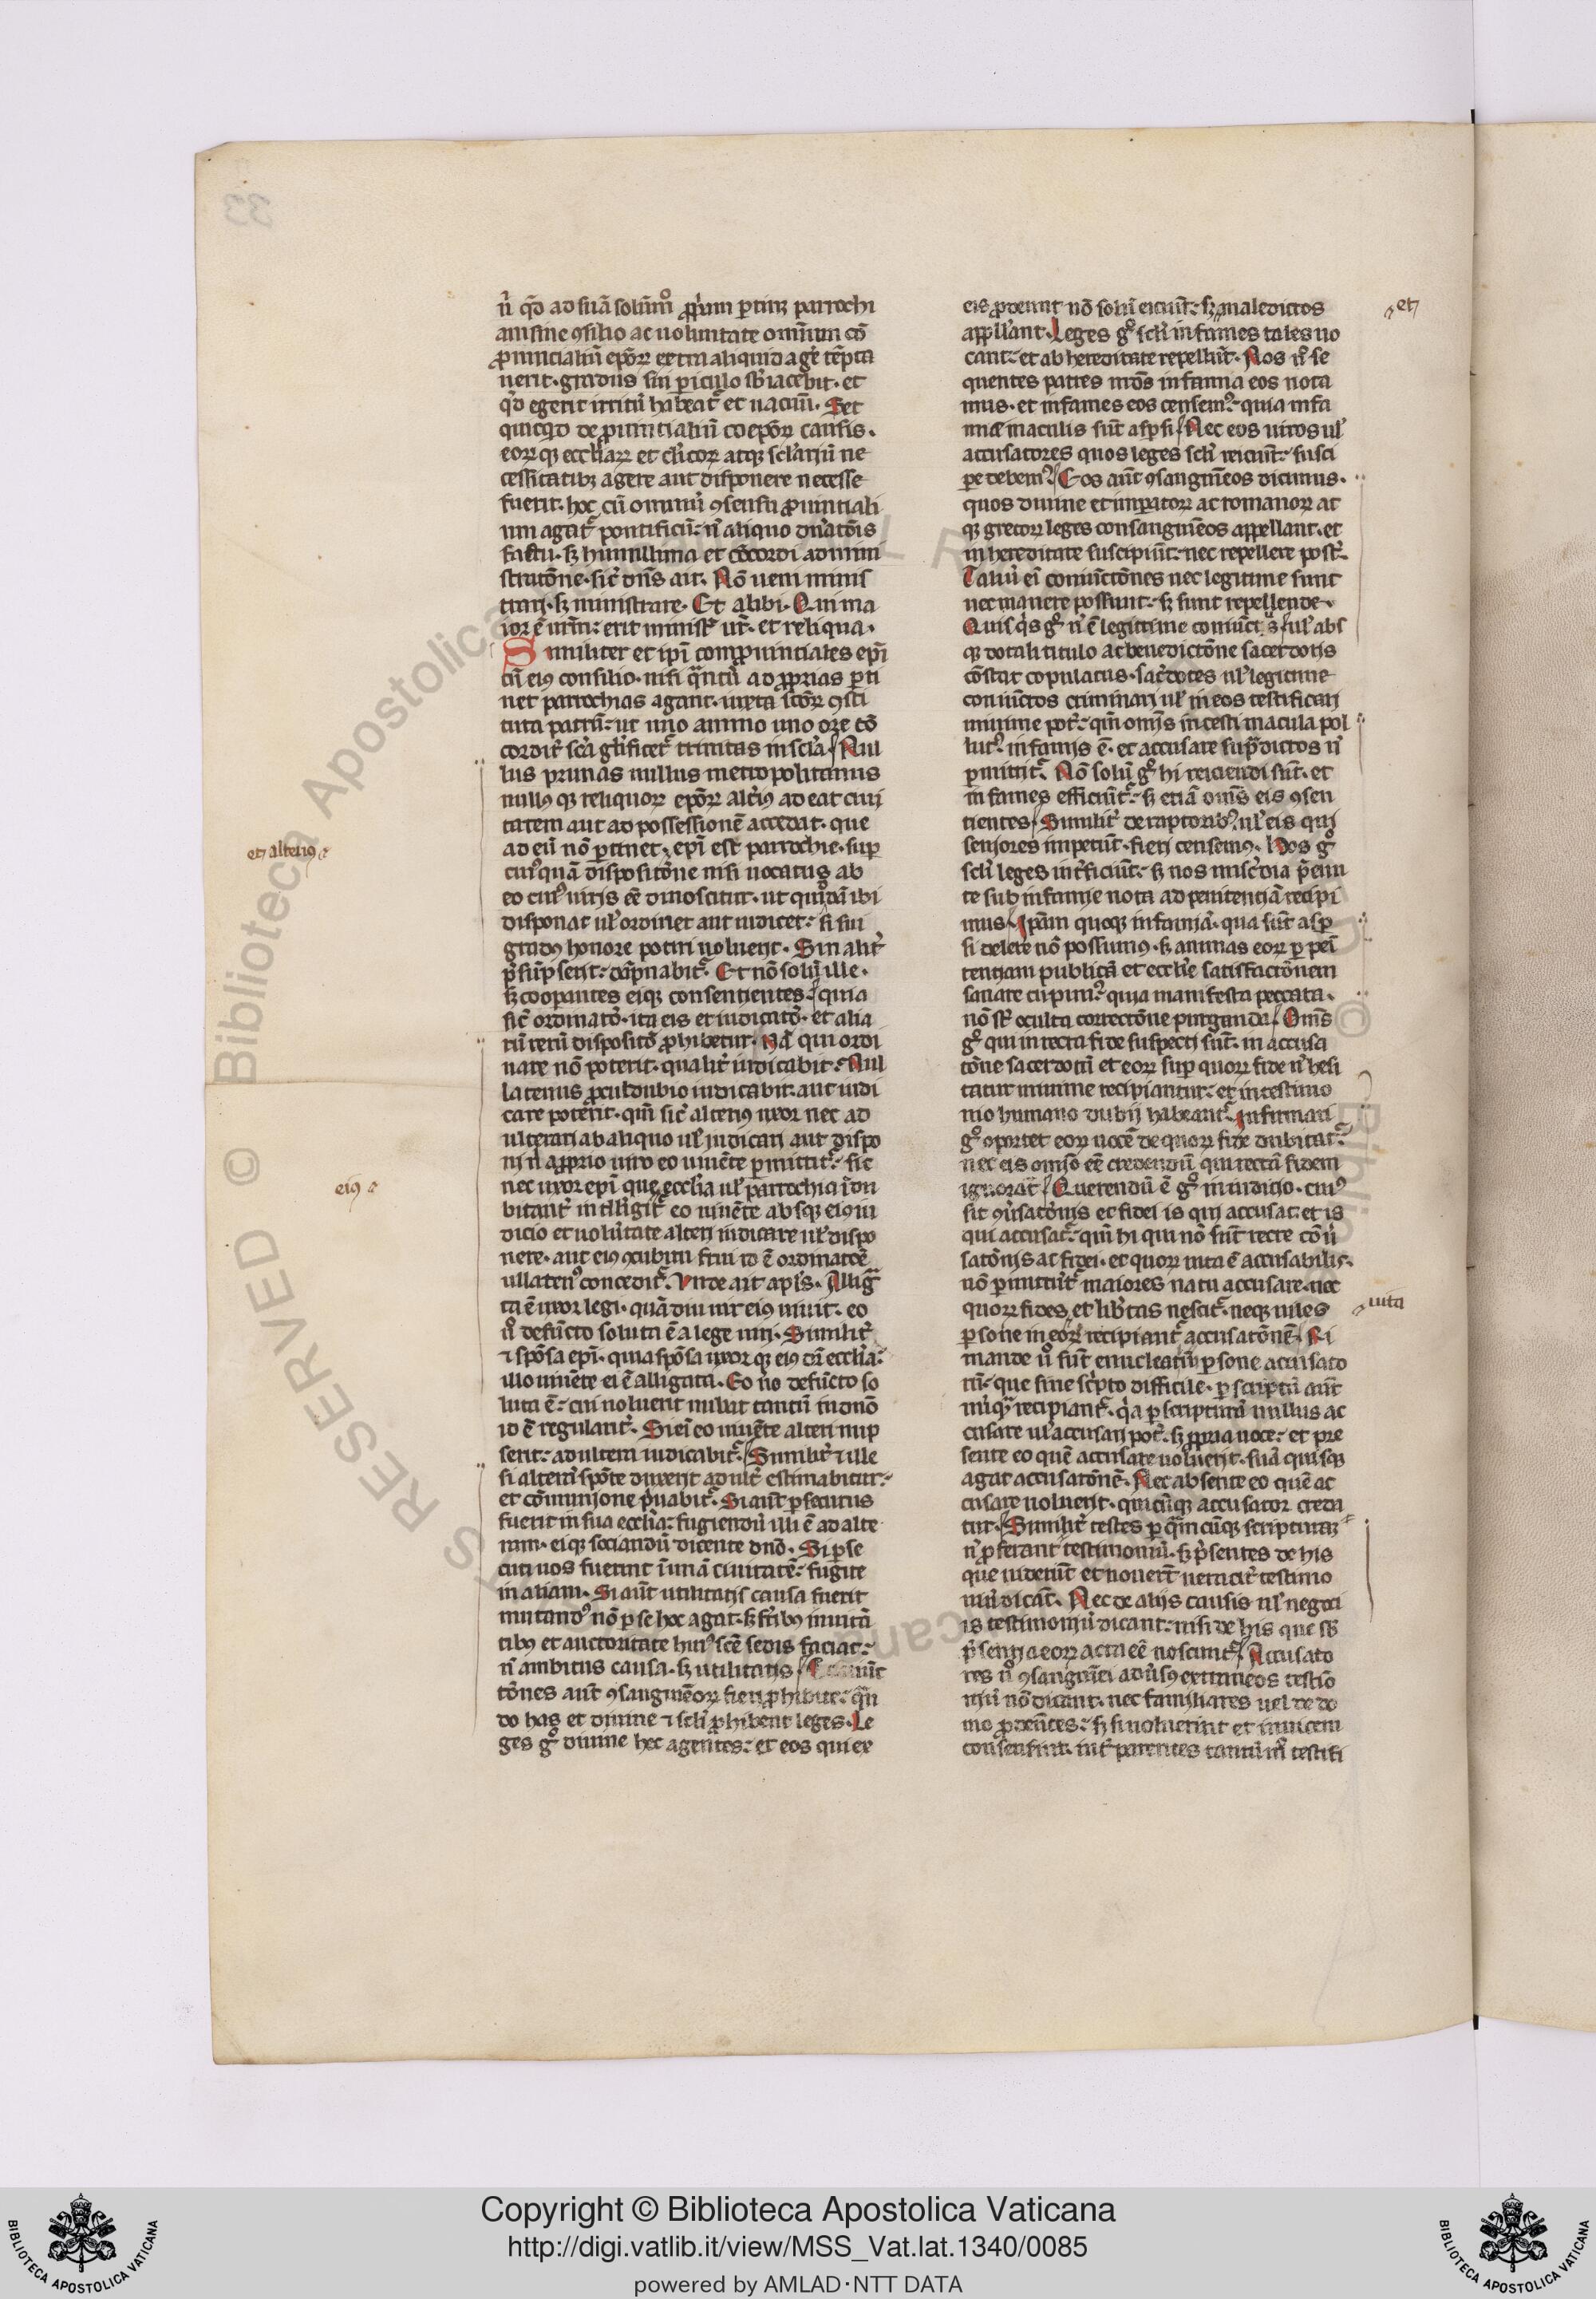 33
n̉ qđ ad suā solūmᵒ ꝓp̉um ꝑtinꝫ parrochi
am sine ꝯsilio ac uoluntate omnium cō
ꝓuincialiū ep̄oꝝ extra aliquid agē tēpta
uerit · gradus sui ꝑiculo sb̉iacebit · et
qđ egerit irritū habeat᷑ et uacuū · Set
quicqđ de ꝓuincialiū coep̄oꝝ causis ·
eoꝝqꝫ eccl̉iaꝝ et cl̉icoꝝ atqꝫ scl̉ariū ne
cessitatibꝫ agere aut disponere necesse
fuerit · hoc cū omniū ꝯsensu ꝓuinciali
um agat᷑ pontificiū · n̉ aliquo dn̉atōis
fastu · sꝫ humillima et cōcordi admini
stratōne · sic̉ dn̄s ait · Nō ueni minis
trari · sꝫ ministrare · Et alibi · Qui ma
ior ē ur̄m · erit minist̉ ur̄ · et reliqua ·
Similiter et ip̄i comꝓuinciales ep̄i
cū eiꝰ consilio · nisi q̄ntū ad ꝓprias ꝑti
net parrochias agant · iuxta sc̄oꝝ ꝯsti
tuta patrū · ut uno animo uno ore cō
cordit̉ sc̄a gl̉ificet᷑ trinitas in scl̉a · Nul
lus primas nullus metropolitanus
nullꝰqꝫ reliquoꝝ ep̄oꝝ altiꝰ adeat ciui
tatem aut ad possessionē accedat · que
ad eū nō ꝑtinet · ep̄i est parrochie · suꝑ
cuiꝰquā dispositōne nisi uocatus ab
eo cuiꝰ iuris eē dinoscitur · ut quiddā ibi
disponat ul̉ ordinet aut iudicet · si sui
gradꝰ honore potiri uoluerit · Sin alit̉
p̄sūpserit · dāpnabit᷑ · Et nō solū ille ·
sꝫ cooꝑantes eiqꝫ consentientes · quia
sic̉ ordinatō · ita eis et iudicatō · et alia
rū rerū dispositō ꝓhibetur · Nā qui ordi
nare nō poterit · qualit̉ iudicabit · Nul
latenus ꝓculdubio iudicabit · aut iudi
care poterit · qm̄ sic̉ alteriꝰ uxor nec ad
ulterari ab aliquo ul̉ iudicari aut dispo
ni n̉ a ꝓprio uiro eo uiuēte ꝑmittit᷑ · sic
nec uxor ep̄i que eccl̉ia ul̉ parrochia īdu
bitant̉ intl̉ligit᷑ eo uiuēte absqꝫ eiꝰ iu
dicio et uolūtate alteri iudicare ul̉ dispo
nere · aut eiꝰ ꝯcubitu frui id ē ordinatōe
ullatenꝰ concedit᷑ · Vnde ait apl̉s · Allig̃
ta ē uxor legi · quādiu uir eiꝰ uiuit · eo
uͦ defūcto soluta ē a lege uiri · Similit̉
⁊ spōsa ep̄i · quia spōsa uxorqꝫ eiꝰ dr̄ eccl̉ia ·
illo uiuēte ei ē alligata · Eo uͦo defūcto so
luta ē · cui uoluerit nubat tantū in dnō
id ē regularit̉ · Si eī eo uiuēte alteri nup
serit · adultera iudicabit᷑ · Similit̉ ⁊ ille
si alterā spōte duxerit adult̉ estimabitur ·
et cōmunione p̉uabit᷑ · Si aūt ꝑsecutus
fuerit in sua eccl̉ia · fugiendū illi ē ad alte
ram · eiqꝫ sociandū dicente dn̄o · Si ꝑse
cuti uos fuerint ī unā ciuitatē · fugite
in aliam · Si aūt utilitatis causa fuerit
mutandꝰ nō ꝑ se hoc agat · sꝫ fr̄ibꝰ inuitā
tibꝰ et auctoritate huiꝰ sc̄e sedis faciat ·
n̉ ambitus causa · sꝫ utilitatis · Coniūc
tōnes aūt ꝯsanguīeoꝝ fieri ꝓhibete · qn̄
do has et diuine ⁊ scl̉i ꝓhibent leges · Le
ges gͦ diuine hec agentes · et eos qui ex
et alteriꝰ
eiꝰ
eis ꝓdeunt nō solū eiciūt · sꝫ maledictos
appll̉ant · Leges gͦ scl̉i infames tales uo
cant · et ab hereditate repellūt · Nos uͦ se
quentes patres nr̄os infamia eos nota
mus · et infames eos censemꝰ · quia infa
mie maculis sūt aspsi · Nec eos uiros ul̉
accusatores quos leges scl̉i reiciūt · susci
pe debemꝰ · Eos aūt ꝯsanguīeos dicimus ·
quos diuine et imꝑatoꝝ ac romanoꝝ at
qꝫ grecoꝝ leges consanguīeos appellant · et
in hereditate suscipiūt · nec repellere post̉
Taliū eī coniūctōnes nec legitime sunt
nec manere possunt · sꝫ sunt repellende ·
Quisq̉s gͦ n̉ ē legittime coniūctꝰ s̉ ul̉ abs
qꝫ dotali titulo ac benedictōne sacerdotis
cōstat copulatus · sac̉dotes ul̉ legitime
coniūctos criminari ul̉ in eos testificari
minime pot̉ · qm̄ omīs incesti macula pol
lutꝰ infamis ē · et accusare sup̄dictos n̉
ꝑmittit᷑ · Nō solū gͦ hi reiciendi sūt · et
infames efficiūt᷑ · sꝫ etiā om̄s eis ꝯsen
tientes · Similit̉ de raptoribꝰ · ul̉ eis qui
seniores impetūt · fieri censemꝰ · Hos gͦ
scl̉i leges int̉ficiūt · sꝫ nos mis̉cdia p̄eun
te sub infamie nota ad penitentiā recipi
mus · Ip̄am quoqꝫ infamiā · qua sūt asꝑ
si delere nō possumꝰ · sꝫ animas eoꝝ ꝑ peī
tentiam publicā et eccl̉ie satisfactōnem
sanare cupimꝰ · quia manifesta peccata ·
nō st̉ oculta correctōne purganda · Om̄s
gͦ qui in recta fide suspecti sūt · in accusa
tōne sacerdotū et eoꝝ suꝑ quoꝝ fide n̉ hesi
tatur minime recipiantur · et in testimo
nio humano dubij habeant᷑ · Infirmari
gͦ oportet eoꝝ uocē de quoꝝ fide dubitat᷑ ·
nec eis omīo eē credendū qui rectā fidem
ignorāt · Querendū ē gͦ in iudicio · cuiꝰ
sit ꝯu̓satōnis et fidei is qui accusat · et is
qui accusat᷑ · qm̄ hi qui nō sūt recte cōu̓
satōnis ac fidei · et quoꝝ uita ē accusabilis ·
nō ꝑmittūt᷑ maiores natu accusare · nec
quoꝝ fides et lib̉tas nescit᷑ · neqꝫ uiles
ꝑsone in eoꝝ recipiant᷑ accusatōnē · Ri
mande uͦ sūt enucleatim ꝑsone accusato
rū · que sine sc̉pto difficile · ꝑ scriptū aūt
nūqͣ recipiant᷑ · q̉a ꝑ scripturā nullus ac
cusare ul̉ accusari pot̉ · sꝫ ꝓpria uoce · et pre
sente eo quē accusare uoluerit · suā quisqꝫ
agat accusatōnē · Nec absente eo quē ac
cusare uoluerit · quicūqꝫ accusator creda
tur · Similit̉ testes ꝑ q̄mcūqꝫ scripturaꝫ
n̉ ꝓferant testimoniū · sꝫ p̄sentes de his
que uiderūt et nouerūt ueracit̉ testimo
niū dicāt · Nec de alijs causis ul̉ negoci
is testimoniū dicant · nisi de his que sb̉
p̄sentia eoꝝ acta eē noscunt᷑ · Accusato
res uͦ ꝯsanguīei adu̓sꝰ extraneos testīo
niū nō dicant · nec familiares uel de do
mo ꝓdeūtes · sꝫ si uoluerint et inuicem
consenserint · int̉ parentes tantūmͦ testifi
et
uita
Copyright © Biblioteca Apostolica Vaticana
http://digi.vatlib.it/view/MSS_Vat.lat.1340/0085
powered by AMLAD·NTT DATA